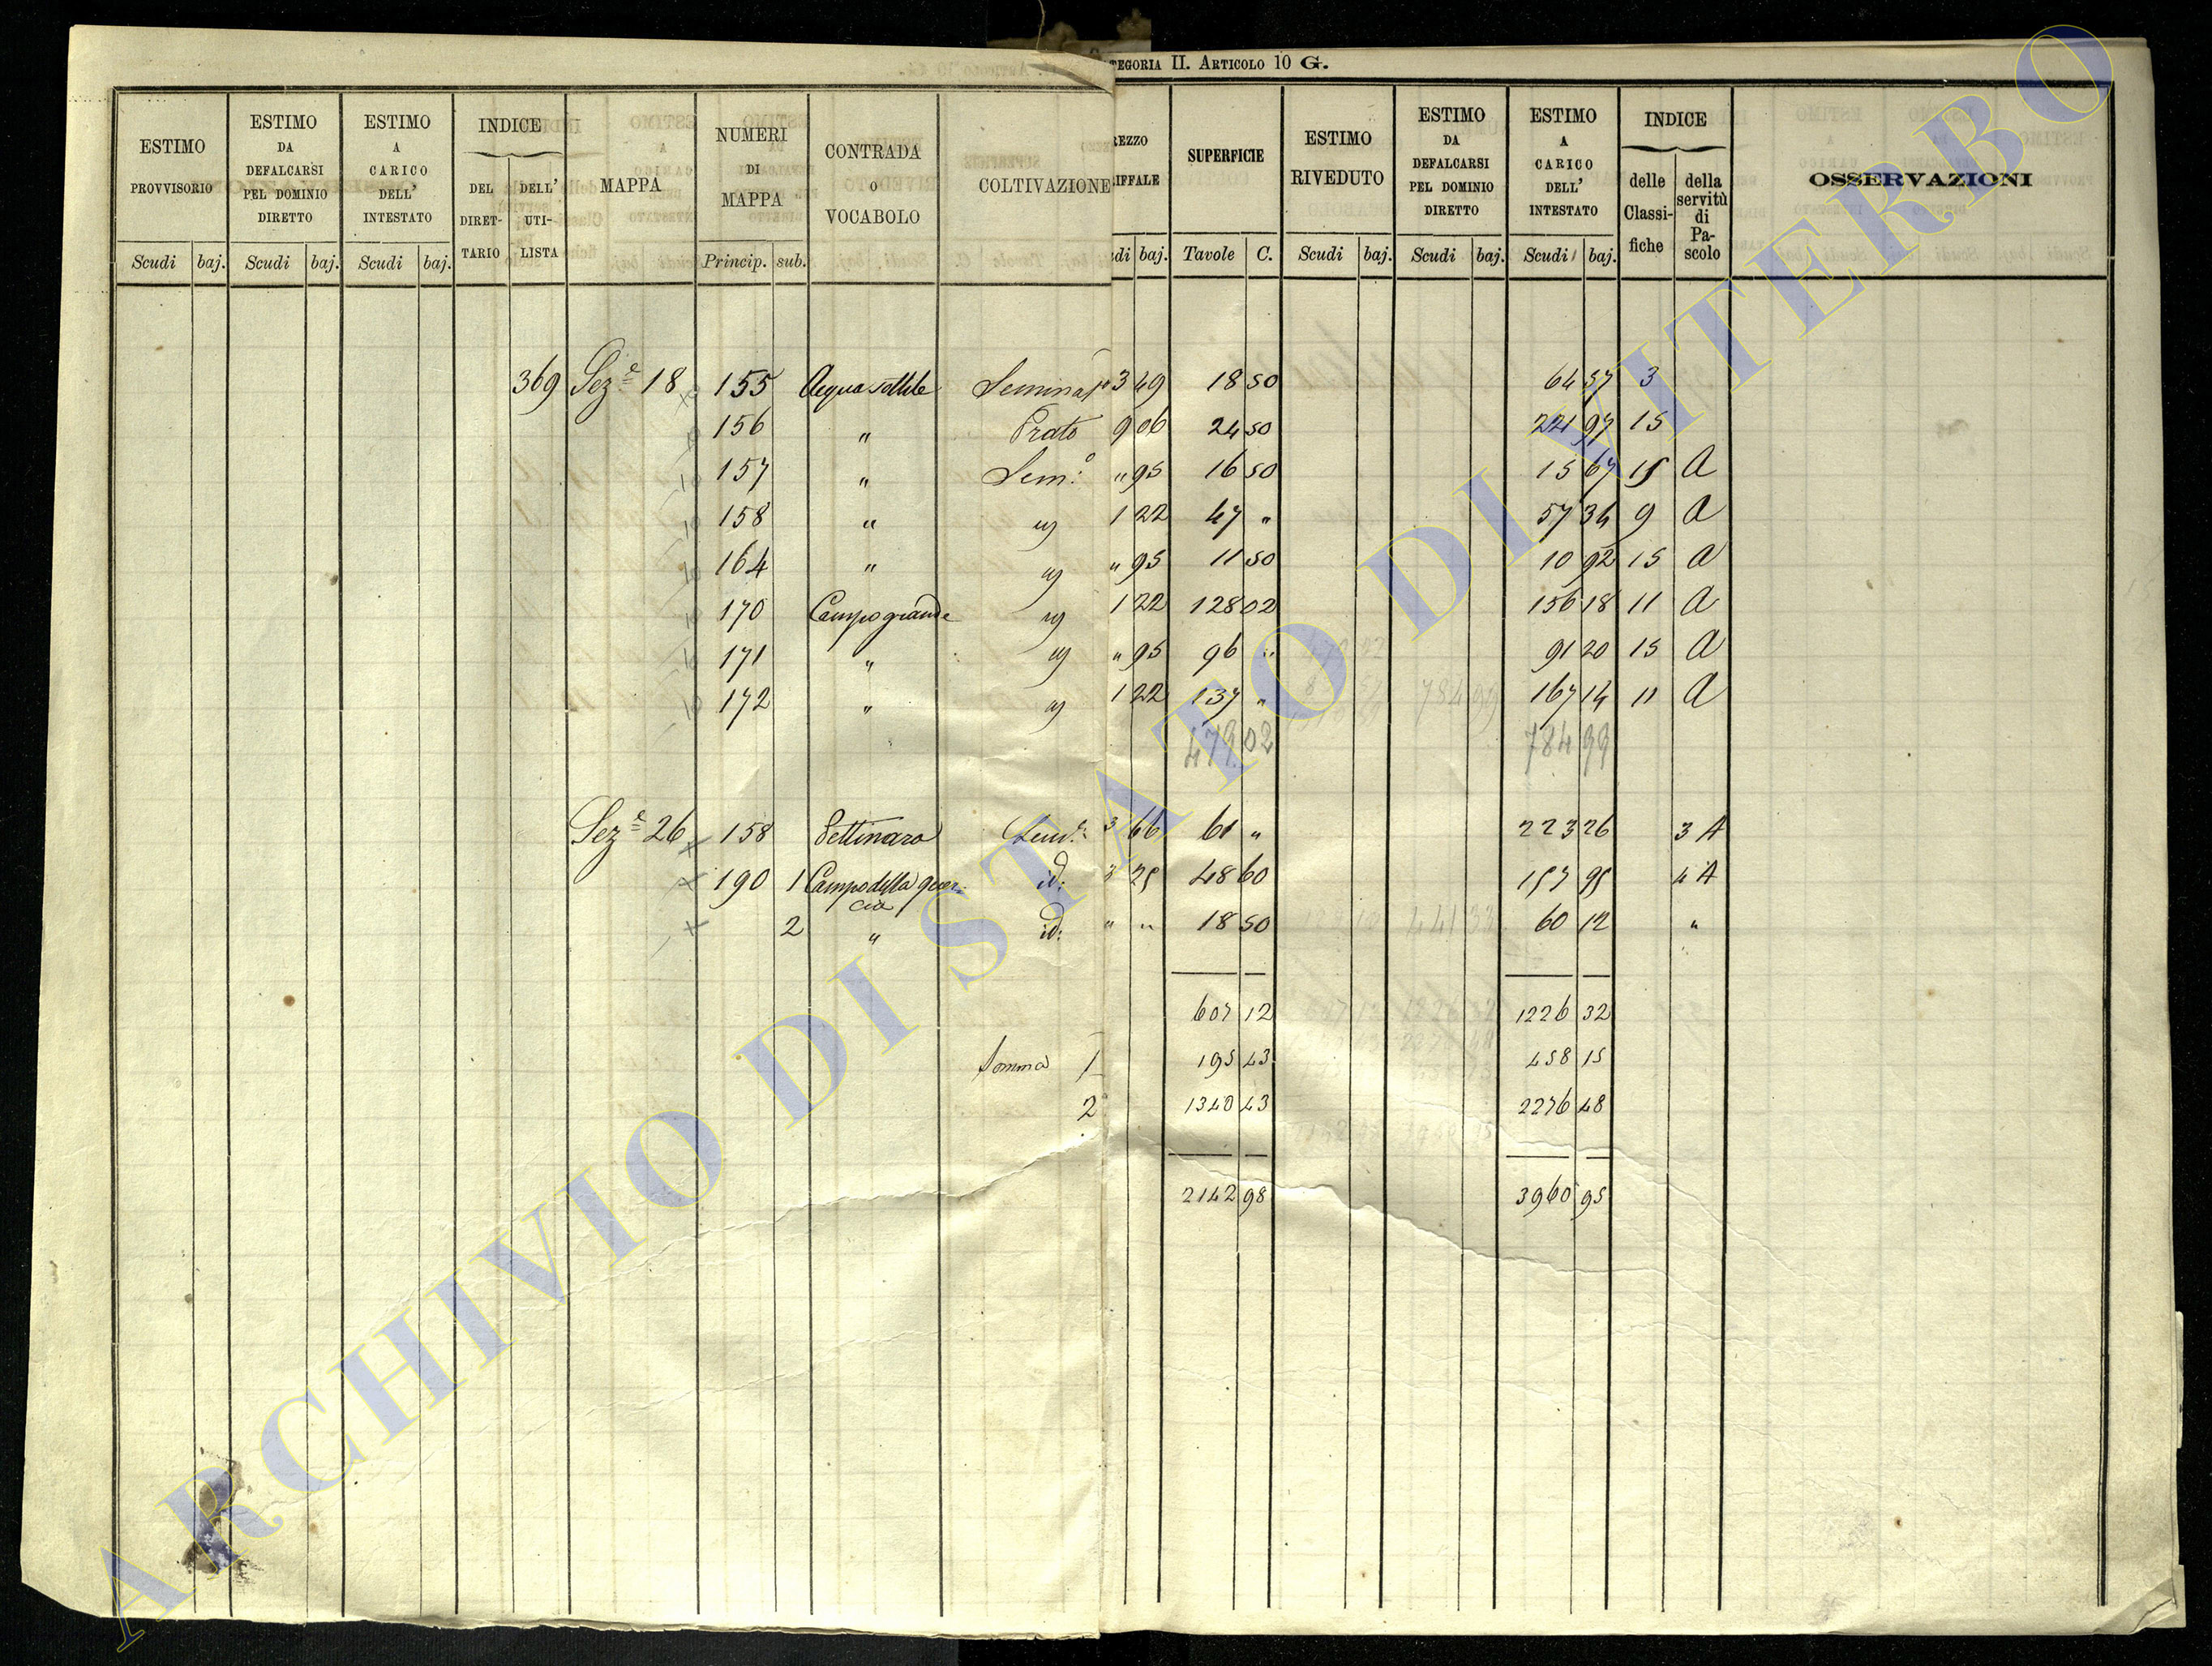 TEGORIA II. ARTICOLO 10 G.
ESTIMO PROVVISORIO
ESTIMO DA DEFALCARSI PEL DOMINIO DIRETTO
ESTIMO A CARICO DELL' INTESTATO
INDICE
DEL DIRET-TARIO
DELL' UTI-LISTA
MAPPA
NUMERI DI MAPPA
CONTRADA O VOCABOLO
COLTIVAZIONE
REZZO
IFFALE
SUPERFICIE
ESTIMO RIVEDUTO
ESTIMO DA DEFALCARSI PEL DOMINIO DIRETTO
ESTIMO A CARICO DELL' INTESTATO
INDICE
delle Classi-fiche
della servitù di Pa-scolo
OSSERVAZIONI
Scudi baj. Scudi baj. Scudi baj. Princip. sub. di baj. Tavole C. Scudi baj. Scudi baj. Scudi baj.
369 Sez.e 18 155 Acqua sottile Seminat.o 3 49 18 50 64 57 3
156 " Prato 9 06 24 50 221 97 15
157 " Sem:o " 95 16 50 15 67 15 A
158 " " 1 22 47 " 57 34 9 A
164 " " " 95 11 50 10 92 15 A
170 Campo grande " 1 22 128 02 156 18 11 A
171 " " " 95 96 " 91 20 15 A
172 " " 1 22 137 " 167 14 11 A
479 02 784 99
Sez.e 26 158 Pettinara 3 66 61 " 223 26 3 A
190 1 Campo della quer:cia id: 3 25 48 60 157 95 4 A
2 " id: " " 18 50 60 12 "
607 12 1226 32
Somma 1 195 43 458 15
2 1340 43 2276 48
2142 98 3960 95
ARCHIVIO DI STATO DI VITERBO